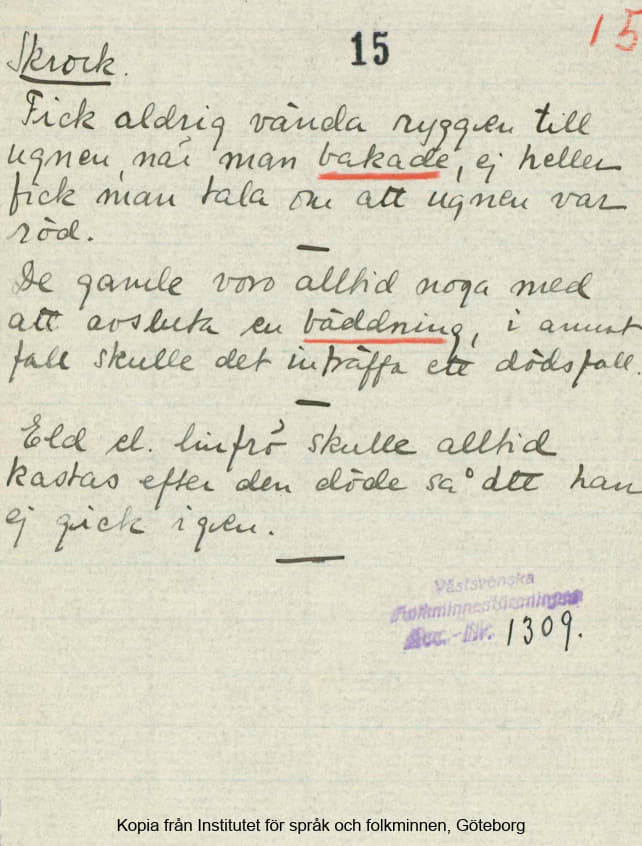 15
15
Skrock.
Fick aldrig vända ryggen till
ugnen när man bakade, ej heller
fick man tala om att ugnen var
röd.
De gamle voro alltid noga med
att avsluta en bäddning, i annat
fall skulle det inträffa ett dödsfall.
Eld el. linfrö skulle alltid
kastas efter den döde så att han
ej gick igen.
Västsvenska
Folkminnesföreningen
Acc.-Nr. 1309.
Kopia från Institutet för språk och folkminnen, Göteborg